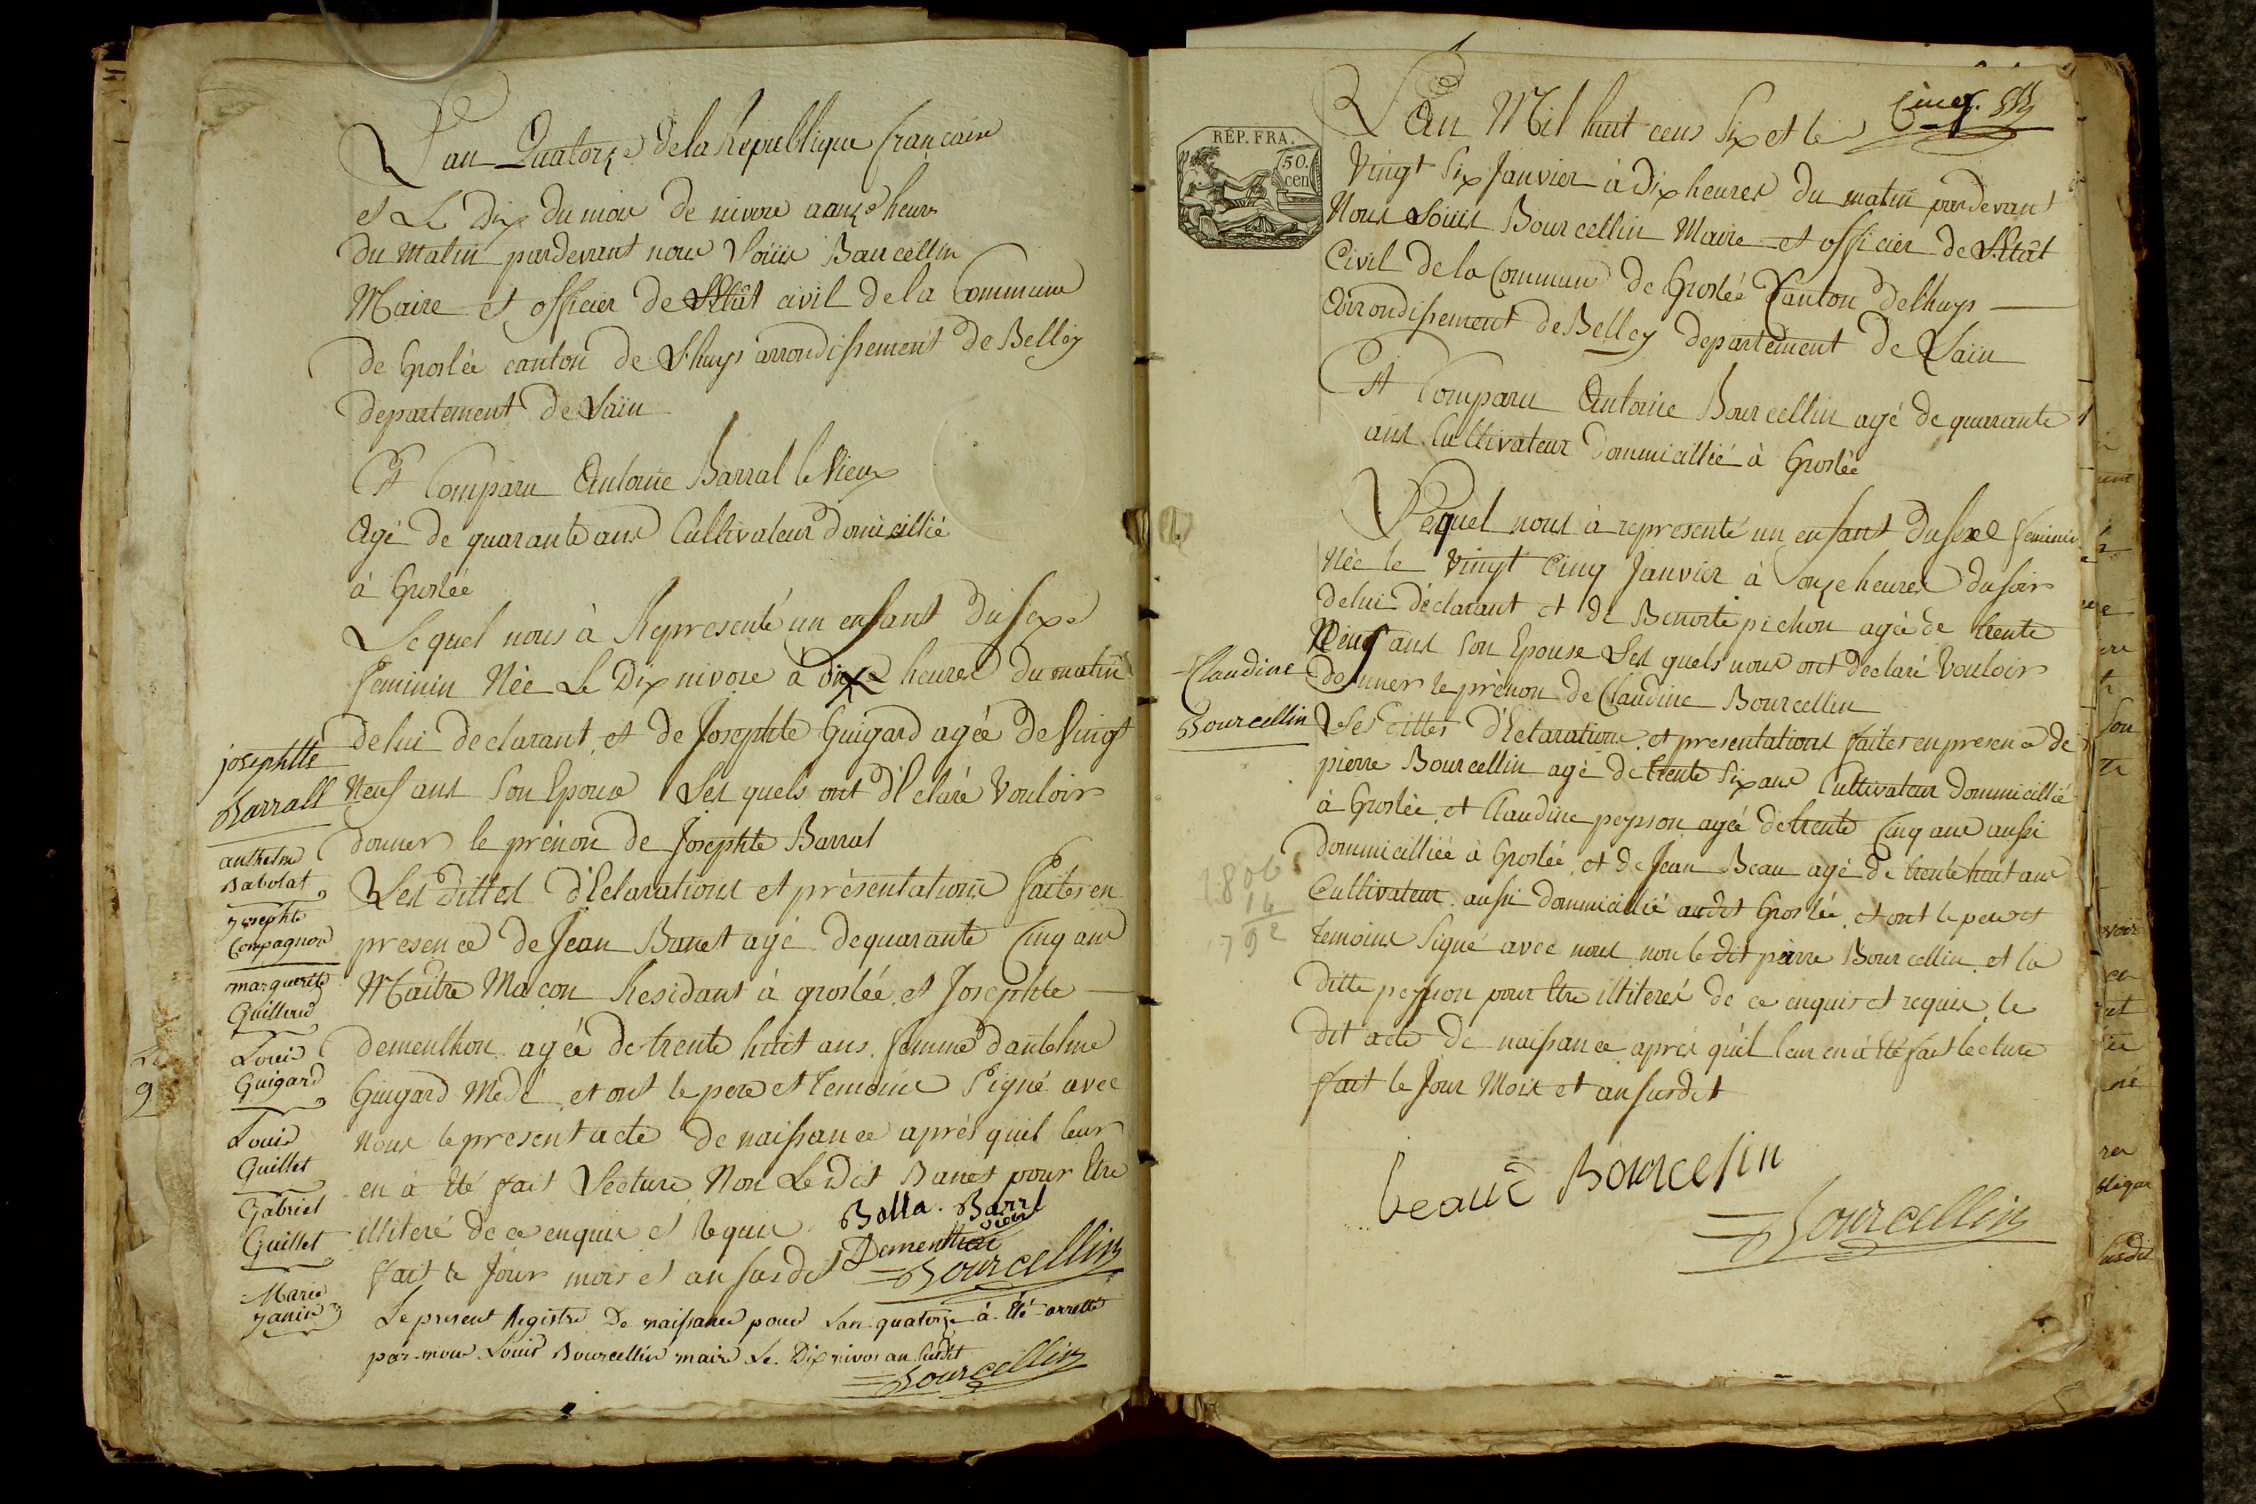 L'an Quatorze de la Republlique francaise
et Le Dix du mois de nivose a onze heures
du matin pardevant nous Loüis Bourcellin
Maire et officier de L'Etât civil de la Commune
de Groslée canton de Lhuys arrondissement de Belley
departement de Lain
A Comparu Antoine Barral le Vieux
Agé de quarante ans Cultivateur domicillié
à Groslée
Lequel nous à Representé un enfant du sexe
feminin Née Le Dix nivose à dix heures du matin
de lui declarant et de Josephte Guigard agée de Vingt
Neuf ans Son Epouse Les quels ont d'Eclaré Vouloir
donner le prénon de Josephte Barral
Les dittes d'Eclarations et présentations faites en
presence de Jean Banet agé de quarante Cinq ans
Maitre Macon Residant à groslée et Josephte
dementhon agée de trente huit ans femme d'antelme
Guigard Medé et ont le pere et temoins Signé avec
Nous le present acte de naissance aprés quil leur
en à Eté fait Lecture Non Le dit Banet pour Etre
illiteré de ce enquis et Requis
fait le Jour mois et an susdit
Bolla . Barrl
vieux
Dementhon
Bourcellin
Le present Registre De naissance pour Lan quatorze à Eté arretté
par nous Louis Bourcellin maire Le Dix nivos an susdit
Bourcellin
josephtte
Barrall
anthelme
Babolat
josephte
Compagnon
marguerite
Guilland
Louis
Guigard
Louis
Guillet
Gabriel
Guillet
Marie
janin
9
REP. FRA.
50.
cen
L'an Mil huit cens Six et le
Vingt Six Janvier à Dix heures du matin pardevant
Nous Loüis Bourcellin Maire et officier de L'Etât
Civil de la Commune de Groslée Canton de Lhuys
Arrondissement de Belley departement de Lain
A Comparu Antoine Bourcellin agé de quarante
ans Cultivateur Dommicillié à Groslée
Lequel nous à representé un enfant du sexe feminin
Née le Vingt Cinq Janvier à onze heures du soir
de lui déclarant et de Benoite pichon agée de trente
Neuf ans Son Epouse Les quels nous ont declaré Vouloir
donner le prénon de Claudine Bourcellin
Les dittes d'Eclarations et presentations faites en presence de
pierre Bourcellin agé de trente Six ans Cultivateur dommicillié
à Groslée et Claudine peysson agée de trente Cinq ans aussi
dommicilliée à Groslée et de Jean Beau agé de trente huit ans
Cultivateur aussi dommicillié audit Groslée et ont le pere et
temoins Signé avec nous non le dit pierre Bourcellin et la
ditte peysson pour Etre illiteres de ce enquis et requis le
dit acte de naissance aprés quil leur en à Eté fait lecture
fait le Jour Mois et an susdit
beaud Bourcelin
Bourcellin
Claudine
Bourcellin
1806
14
792